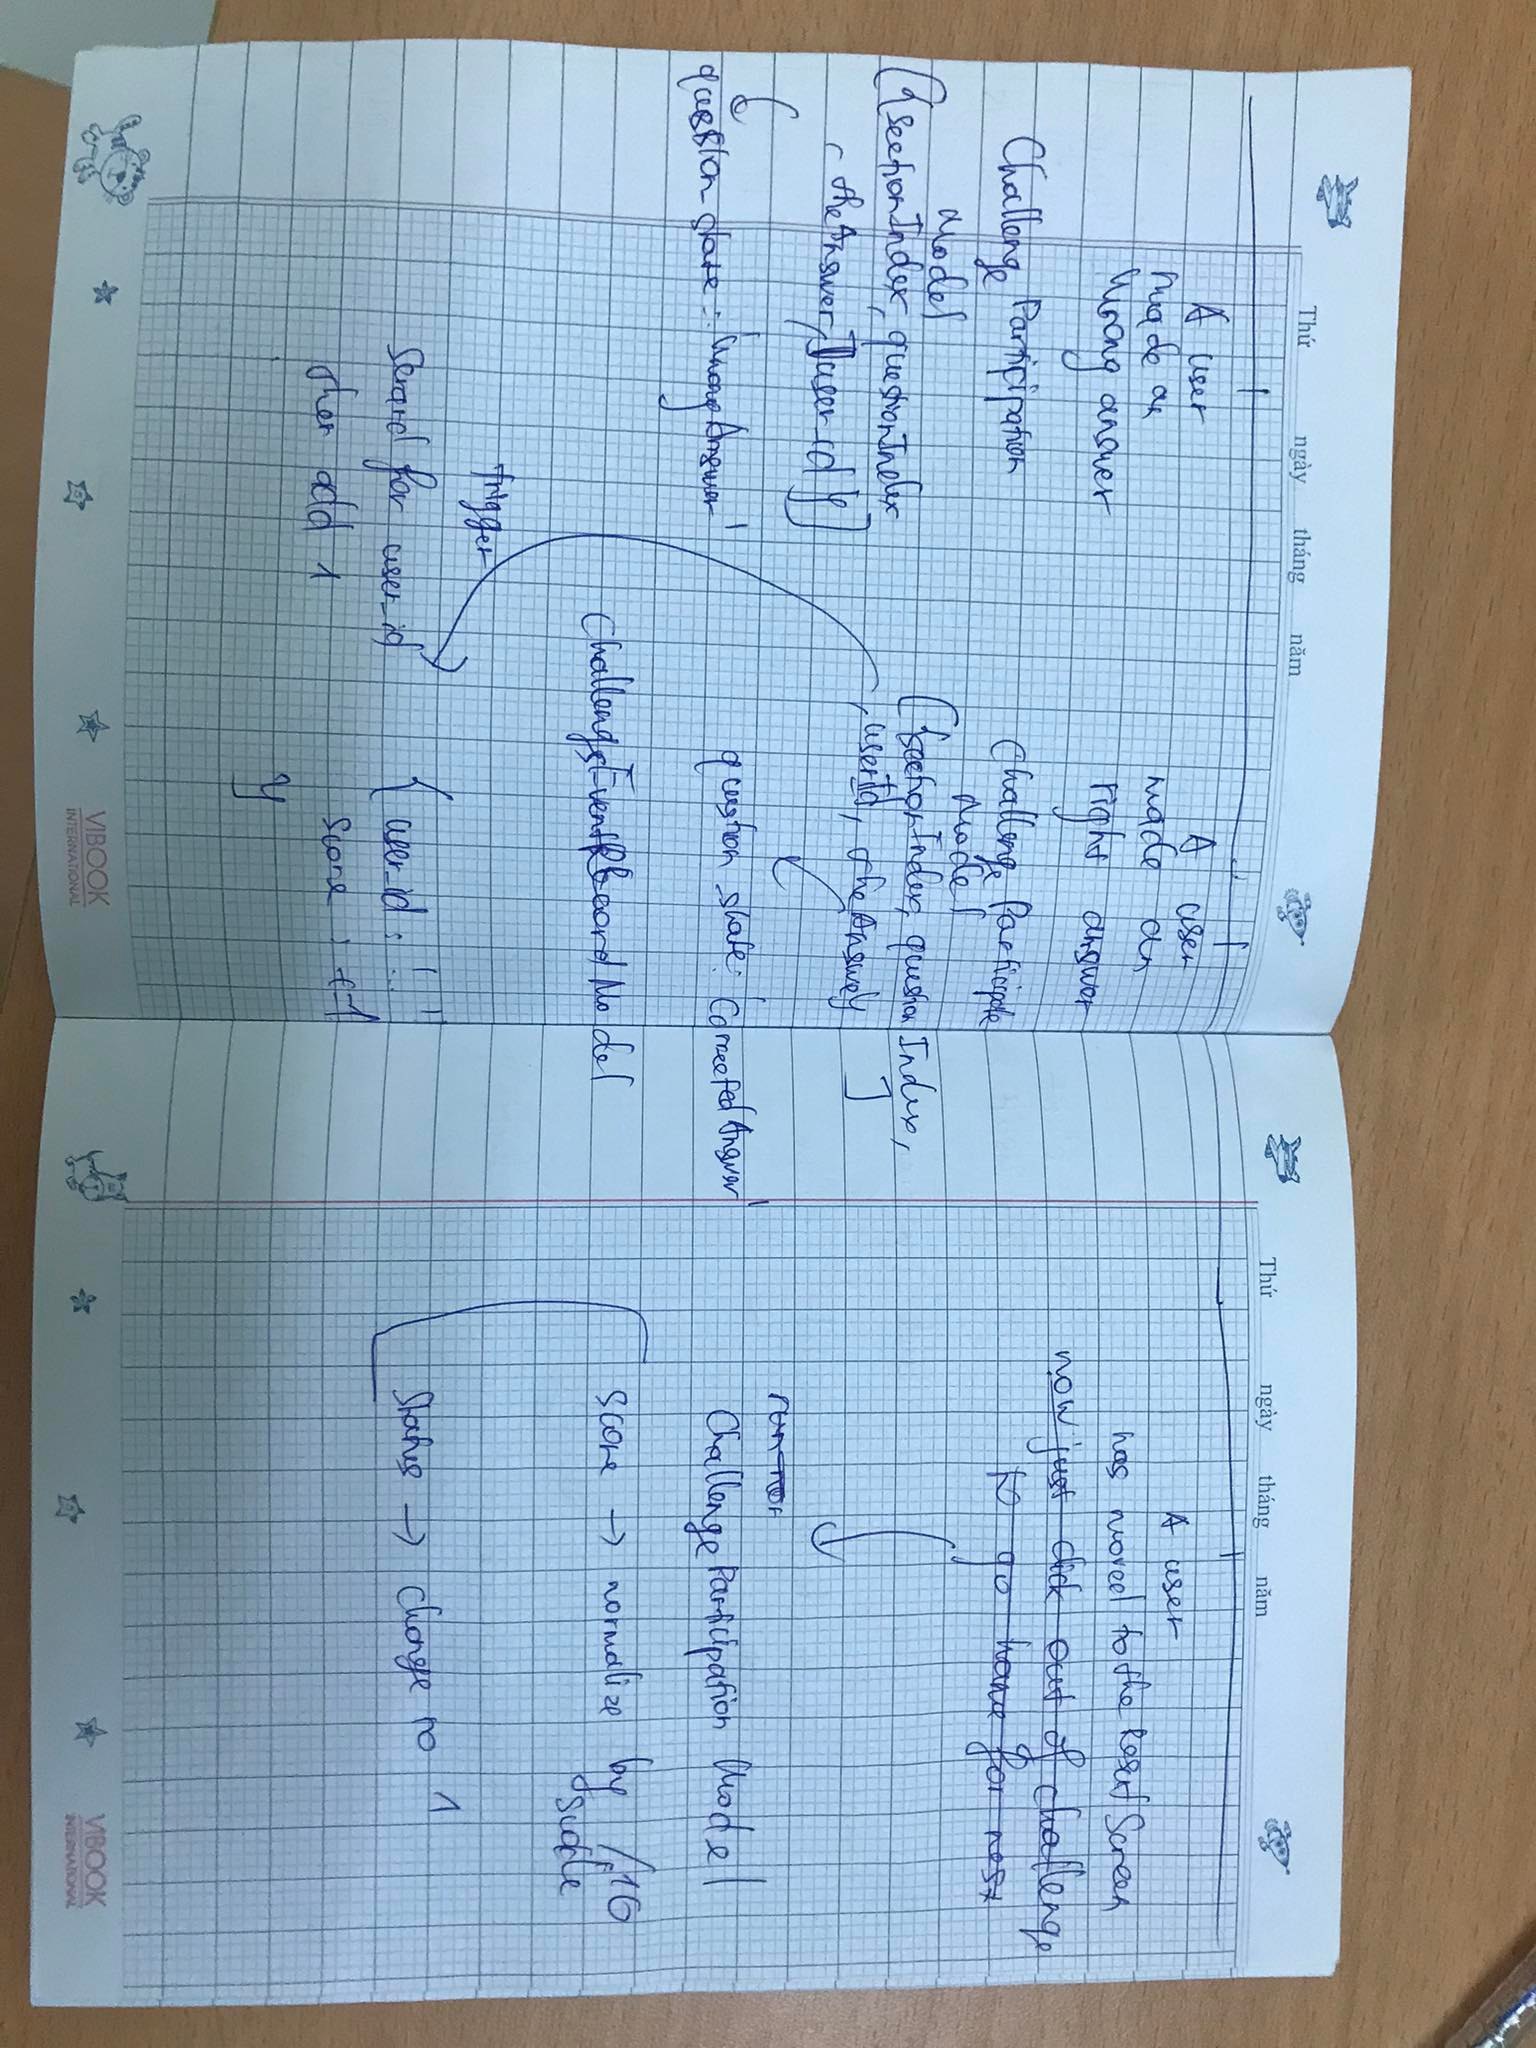 Thứ ngày tháng năm
A user
made an
wrong answer
Challenge Participation
Model
[{sectionIndex, questionIndex
, theAnswer, user_id}]
question_state: 'WrongAnswer'
trigger
Search for user_id
then add 1
A user
made an
right answer
Challenge Participate
Model
[{sectionIndex, questionIndex,
, userId, theAnswer}
]
question_state: 'CorrectedAnswer'
ChallengeEventRecord Model
{ user_id: '...'
score: +1
}
VIBOOK
INTERNATIONAL
Thứ ngày tháng năm
A user
has moved to the Screen
now just click out of challenge
to go home for
Challenge Participation Model
Score → normalize by /16
Status → change to 1
VIBOOK
INTERNATIONAL